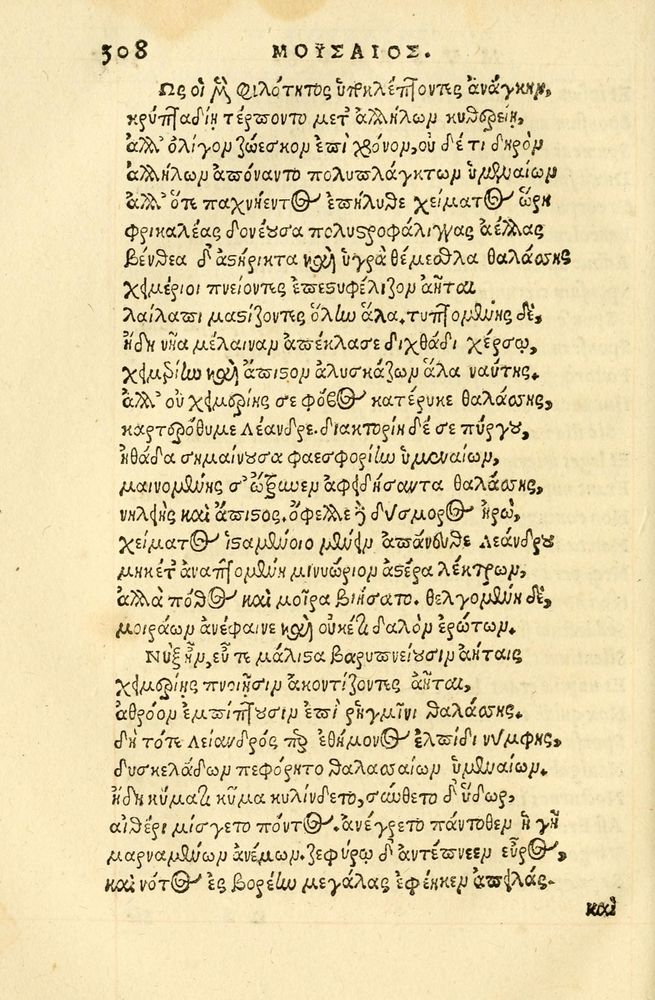 308 ΜΟΥΣΑΙΟΣ.
Ως οἱ μὲν φιλότητος ὑποκλέπτοντες ἀνάγκην,
κρυπταδίῃ τέρποντο μετ' ἀλλήλων κυθερείῃ,
ἀλλ' ὀλίγον ζώεσκον ἐπὶ χρόνον, οὐδ' ἔτι δηρὸν
ἀλλήλων ἀπόναντο πολυπλάγκτων ὑμεναίων
ἀλλ' ὅτε παχνήεντος ἐπήλυθε χείματος ὥρη
φρικαλέας δονέουσα πολυστροφάλιγγας ἀέλλας
βένθεα δ' ἀστήρικτα καὶ ὑγρὰ θέμεθλα θαλάσσης
χειμέριοι πνείοντες ἐπεστυφέλιζον ἀῆται
λαίλαπι μαστίζοντες ὅλην ἅλα. τυπτομένης δὲ,
ἤδη νῆα μέλαιναν ἀπέκλασε διχθάδι χέρσῳ,
χειμερίην καὶ ἄπιστον ἀλυσκάζων ἅλα ναύτης.
ἀλλ' οὐ χειμερίης σε φόβος κατέρυκε θαλάσσης,
καρτερόθυμε Λέανδρε. διακτορίη δέ σε πύργου,
ἠθάδα σημαίνουσα φαεσφορίην ὑμεναίων,
μαινομένης σ' ὤτρυνεν ἀφειδήσαντα θαλάσσης,
νηλειὴς καὶ ἄπιστος. ὄφελλε δὲ δύσμορος ἡρὼ,
χείματος ἱσταμένοιο μένειν ἀπάνευθε Λεάνδρου
μηκέτ' ἀναπτομένη μινυώριον ἀστέρα λέκτρων,
ἀλλὰ πόθος καὶ μοῖρα βιήσατο. θελγομένη δὲ,
μοιράων ἀνέφαινε καὶ οὐκέτι δαλὸν ἐρώτων.
Νὺξ ἦν, εὖτε μάλιστα βαρυπνείουσιν ἀήταις
χειμερίης πνοιῇσιν ἀκοντίζοντες ἀῆται,
ἀθρόον ἐμπίπτουσιν ἐπὶ ῥηγμῖνι θαλάσσης.
δὴ τότε Λείανδρός περ ἐθήμονος ἐλπίδι νύμφης,
δυσκελάδων πεφόρητο θαλασσαίων ὑμεναίων.
ἤδη κύματι κῦμα κυλίνδετο, σύνθετο δ' ὕδωρ,
αἰθέρι μίσγετο πόντος. ἀνέγρετο πάντοθεν ἠ γῆ
μαρναμένων ἀνέμων. ζεφύρῳ δ' ἀντέπνεεν εὖρος,
καὶ νότος ἐς βορέην μεγάλας ἐφέηκεν ἀπειλάς.
καὶ